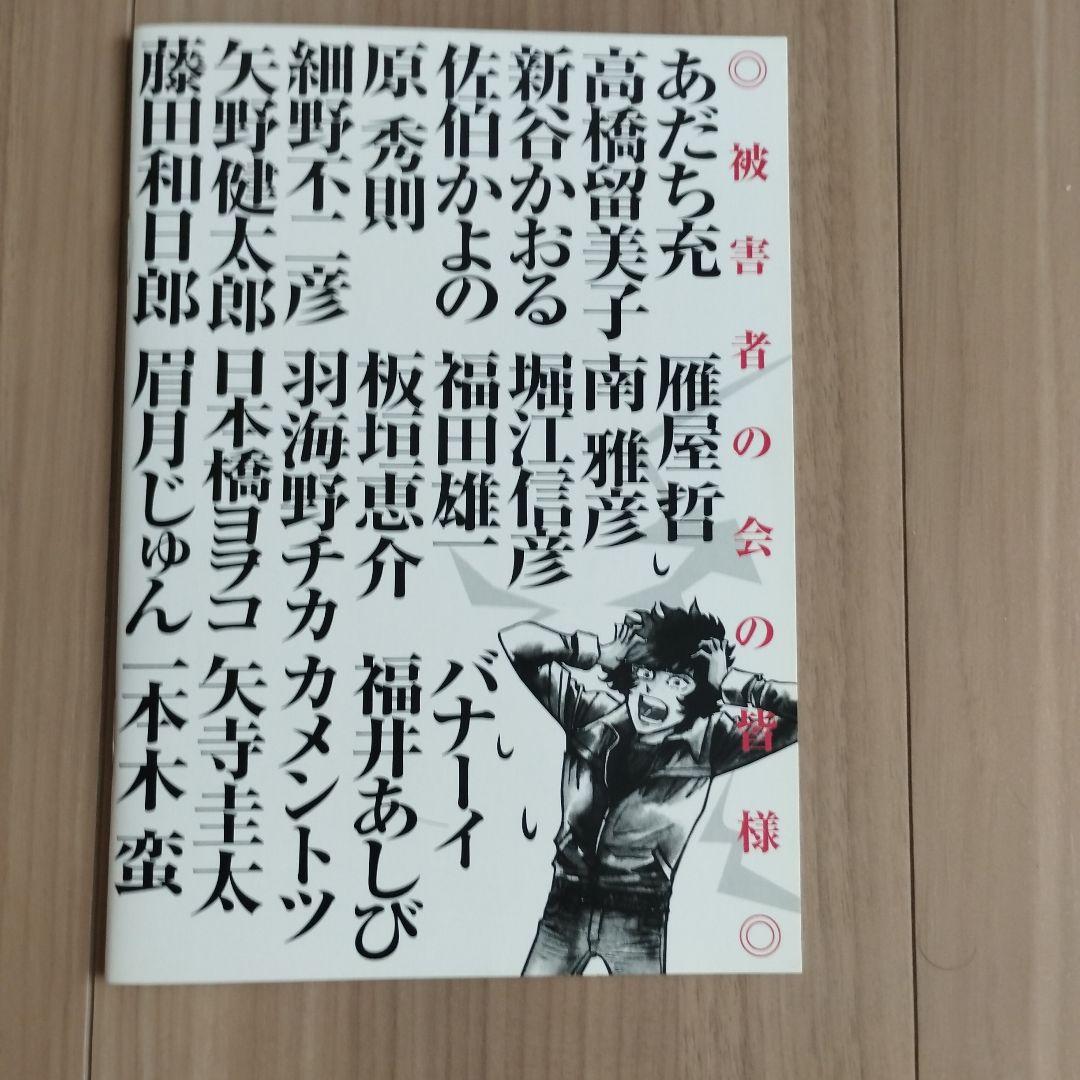 ◎被害者の会の皆様◎
あだち充
高橋留美子
新谷かおる
佐伯かよの
原 秀則
細野不二彦
矢野健太郎
藤田和日郎
雁屋 哲
南 雅彦
堀江信彦
福田雄一
板垣恵介
羽海野チカ
日本橋ヨヲコ
眉月じゅん
バナーイ
福井あしび
カメントツ
矢寺圭太
一本木 蛮